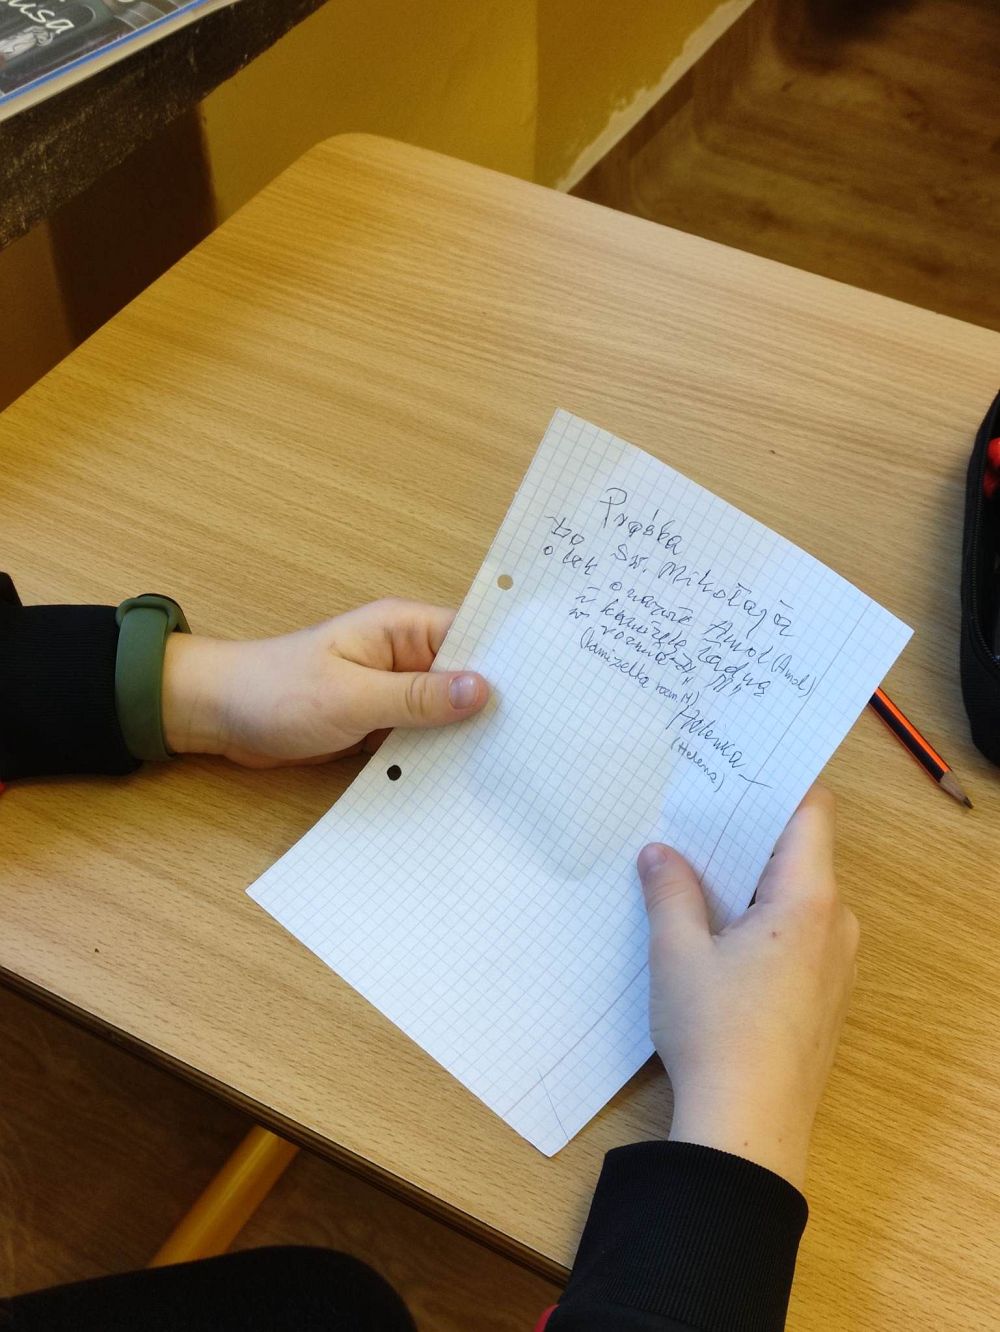 usa
Prośba
do Św. Mikołaja
o lek o nazwie Amol (Amol)
i kamizelkę ładną
w rozmiarze "M"
(kamizelka rozm. M)
Helenka
(Helena)